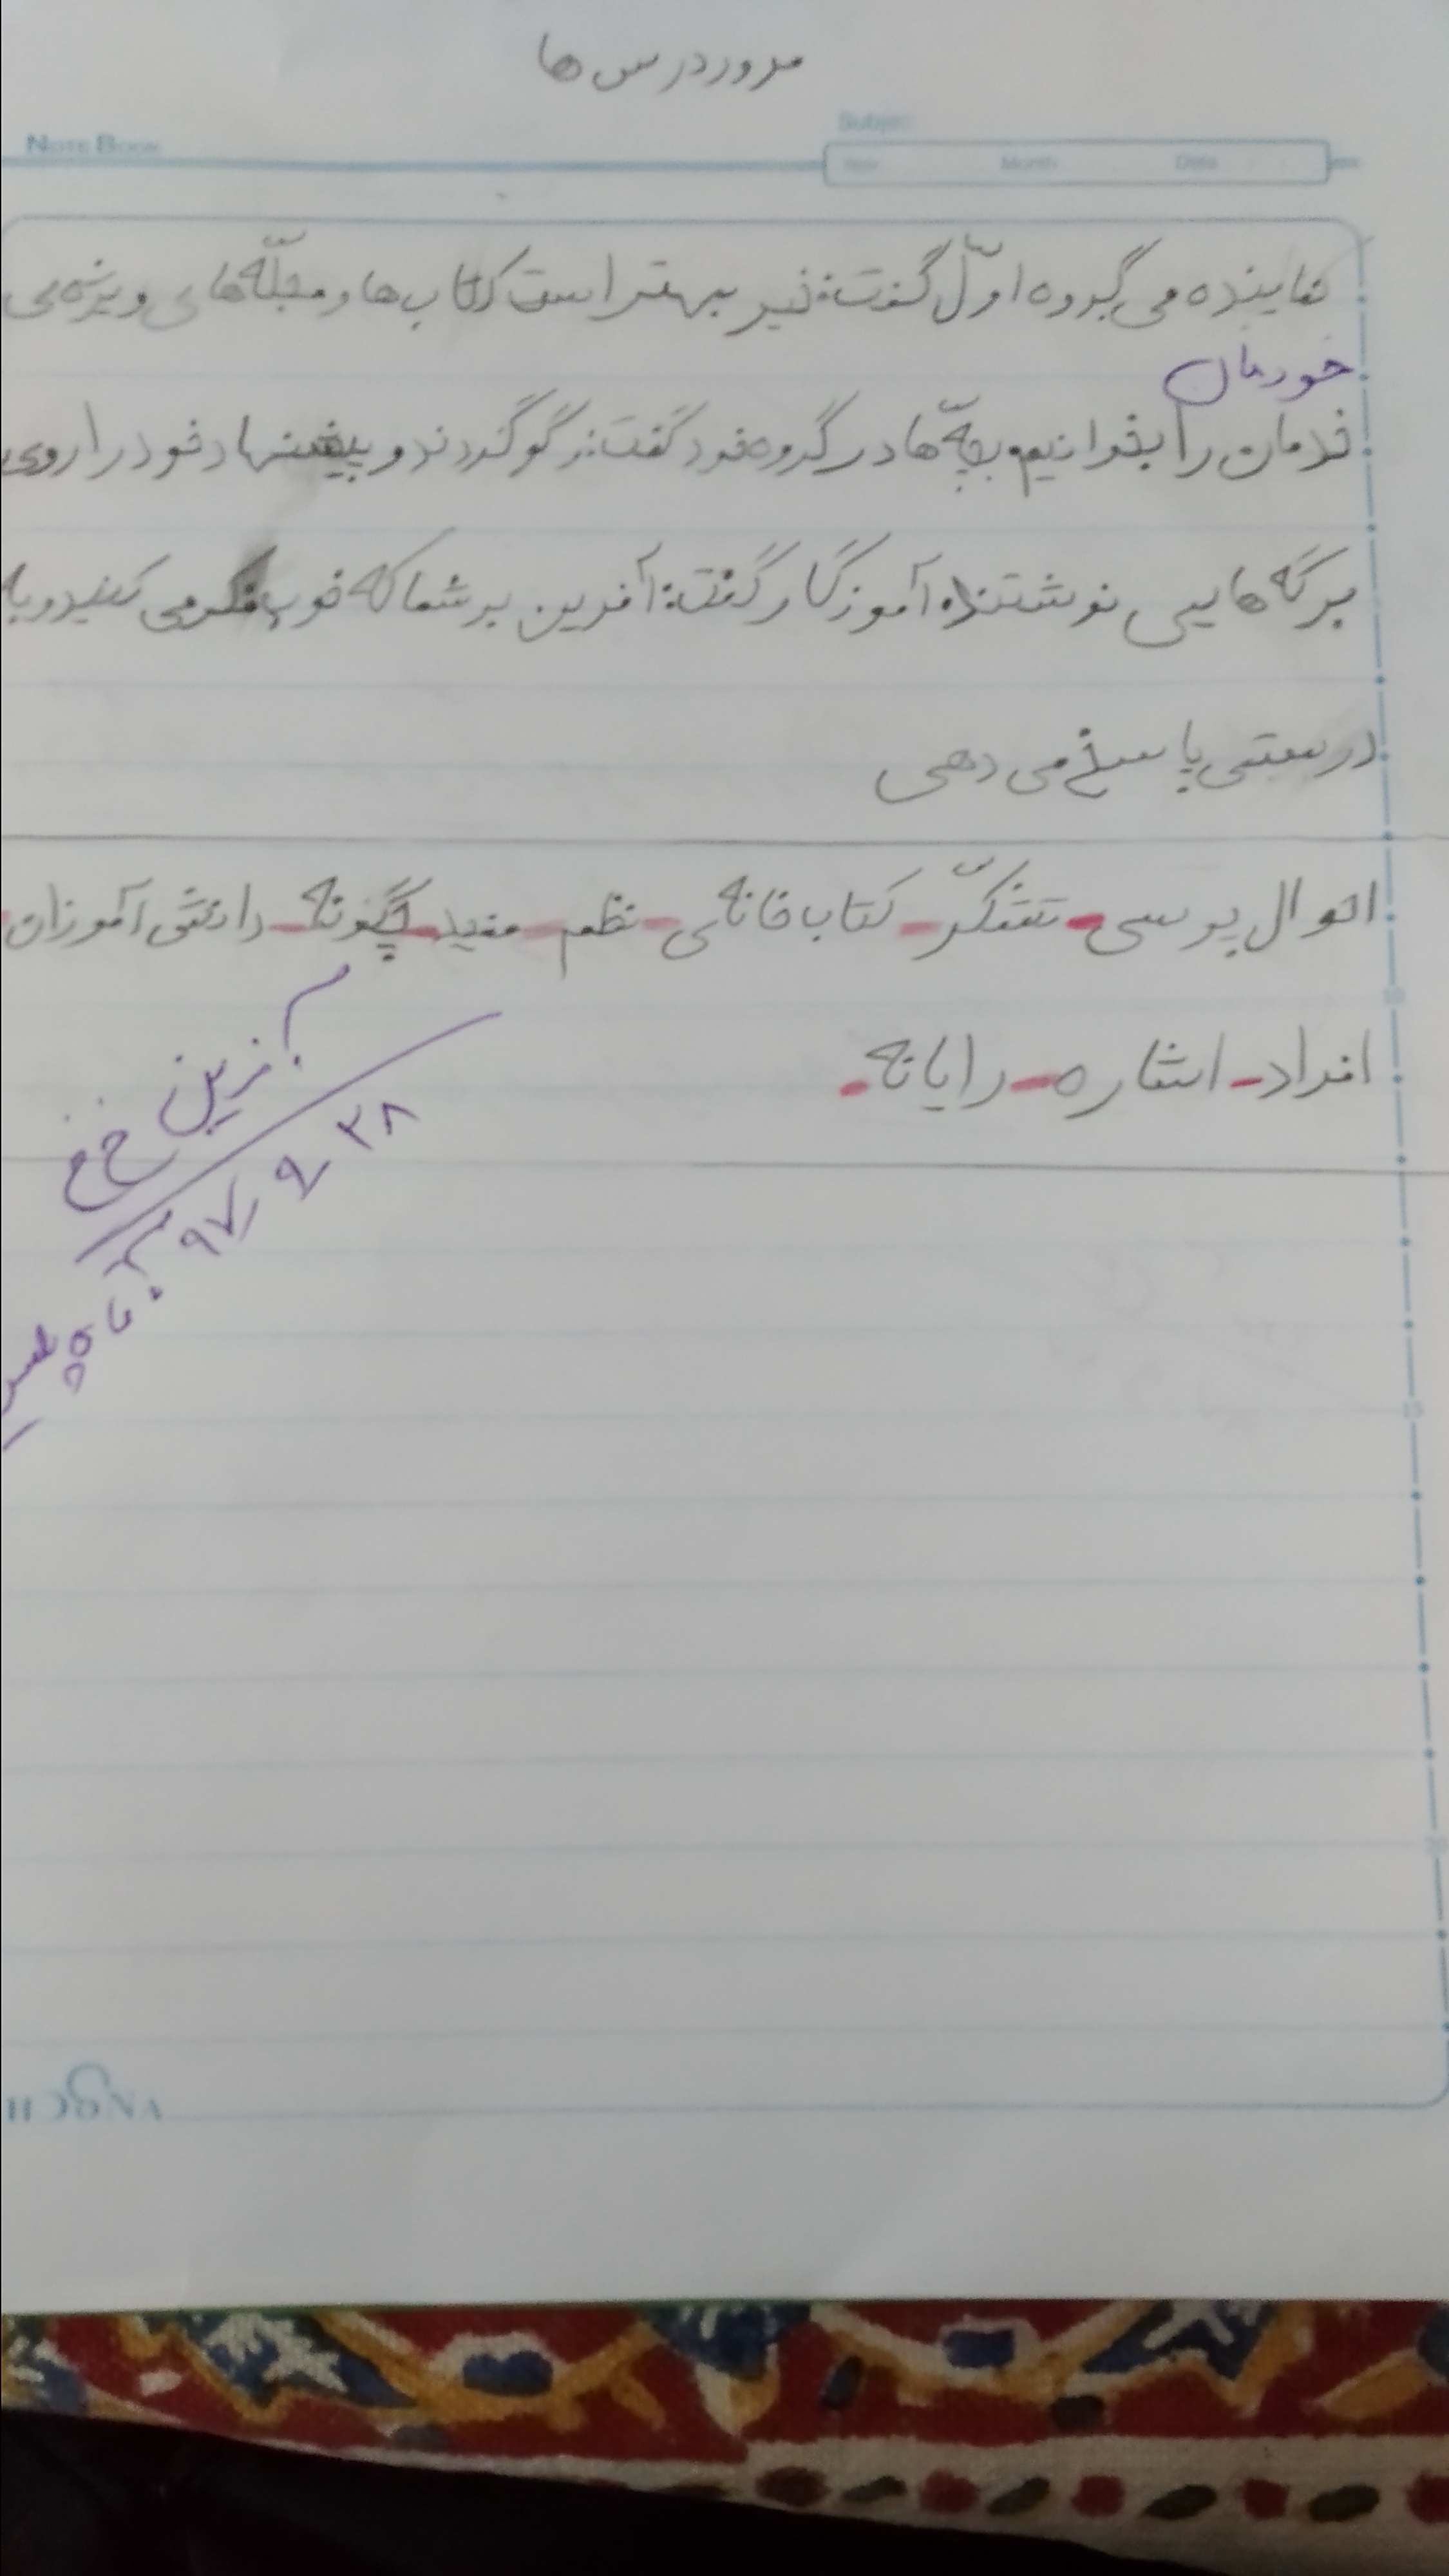 مرور درس ها
NOTE BOOK
Subject
Year Month Date
نماینده ی گروه اوّل گفت: نیز بهتر است کتاب ها و مجلّه های ویژه ی
خودمان
خدمان را بخوانیم. بچّه ها در گروه خود گفت: گو کردند و پیشنهاد خود را روی
برگه هایی نوشتند. آموزگار گفت: آفرین بر شما که خوب فکر می کنید و با
درستی پاسخ می دهی
احوال پرسی - تشکّر - کتاب خانه ی - نظم - مفید - چگونه - دانش آموزان -
افراد - اشاره - رایانه -
آفرین خ خ
۹۷/۹/۲۸